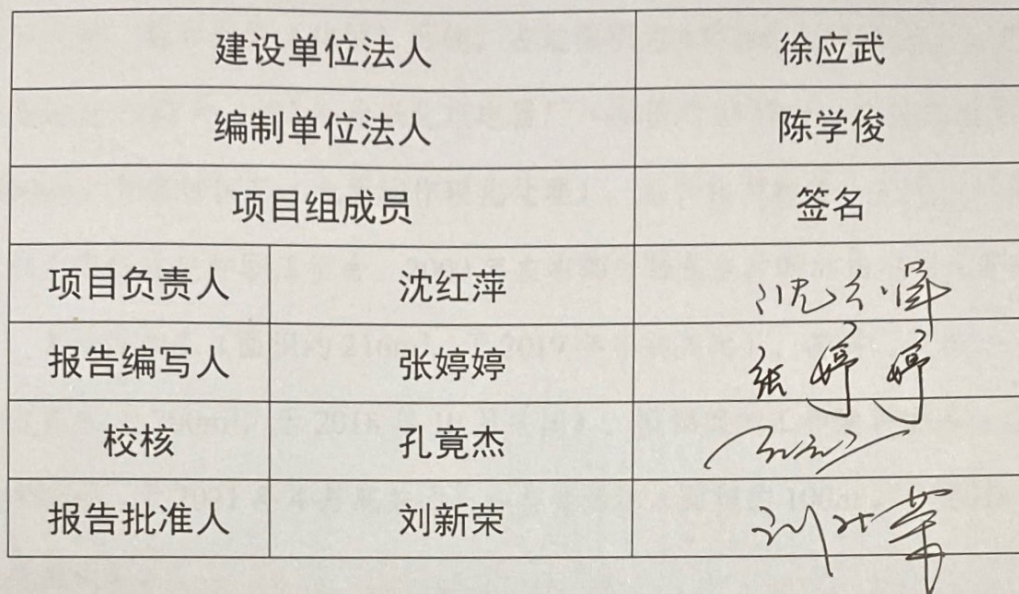 建设单位法人 徐应武
编制单位法人 陈学俊
项目组成员 签名
项目负责人 沈红萍
报告编写人 张婷婷 张婷婷
校核 孔竟杰
报告批准人 刘新荣 刘新荣